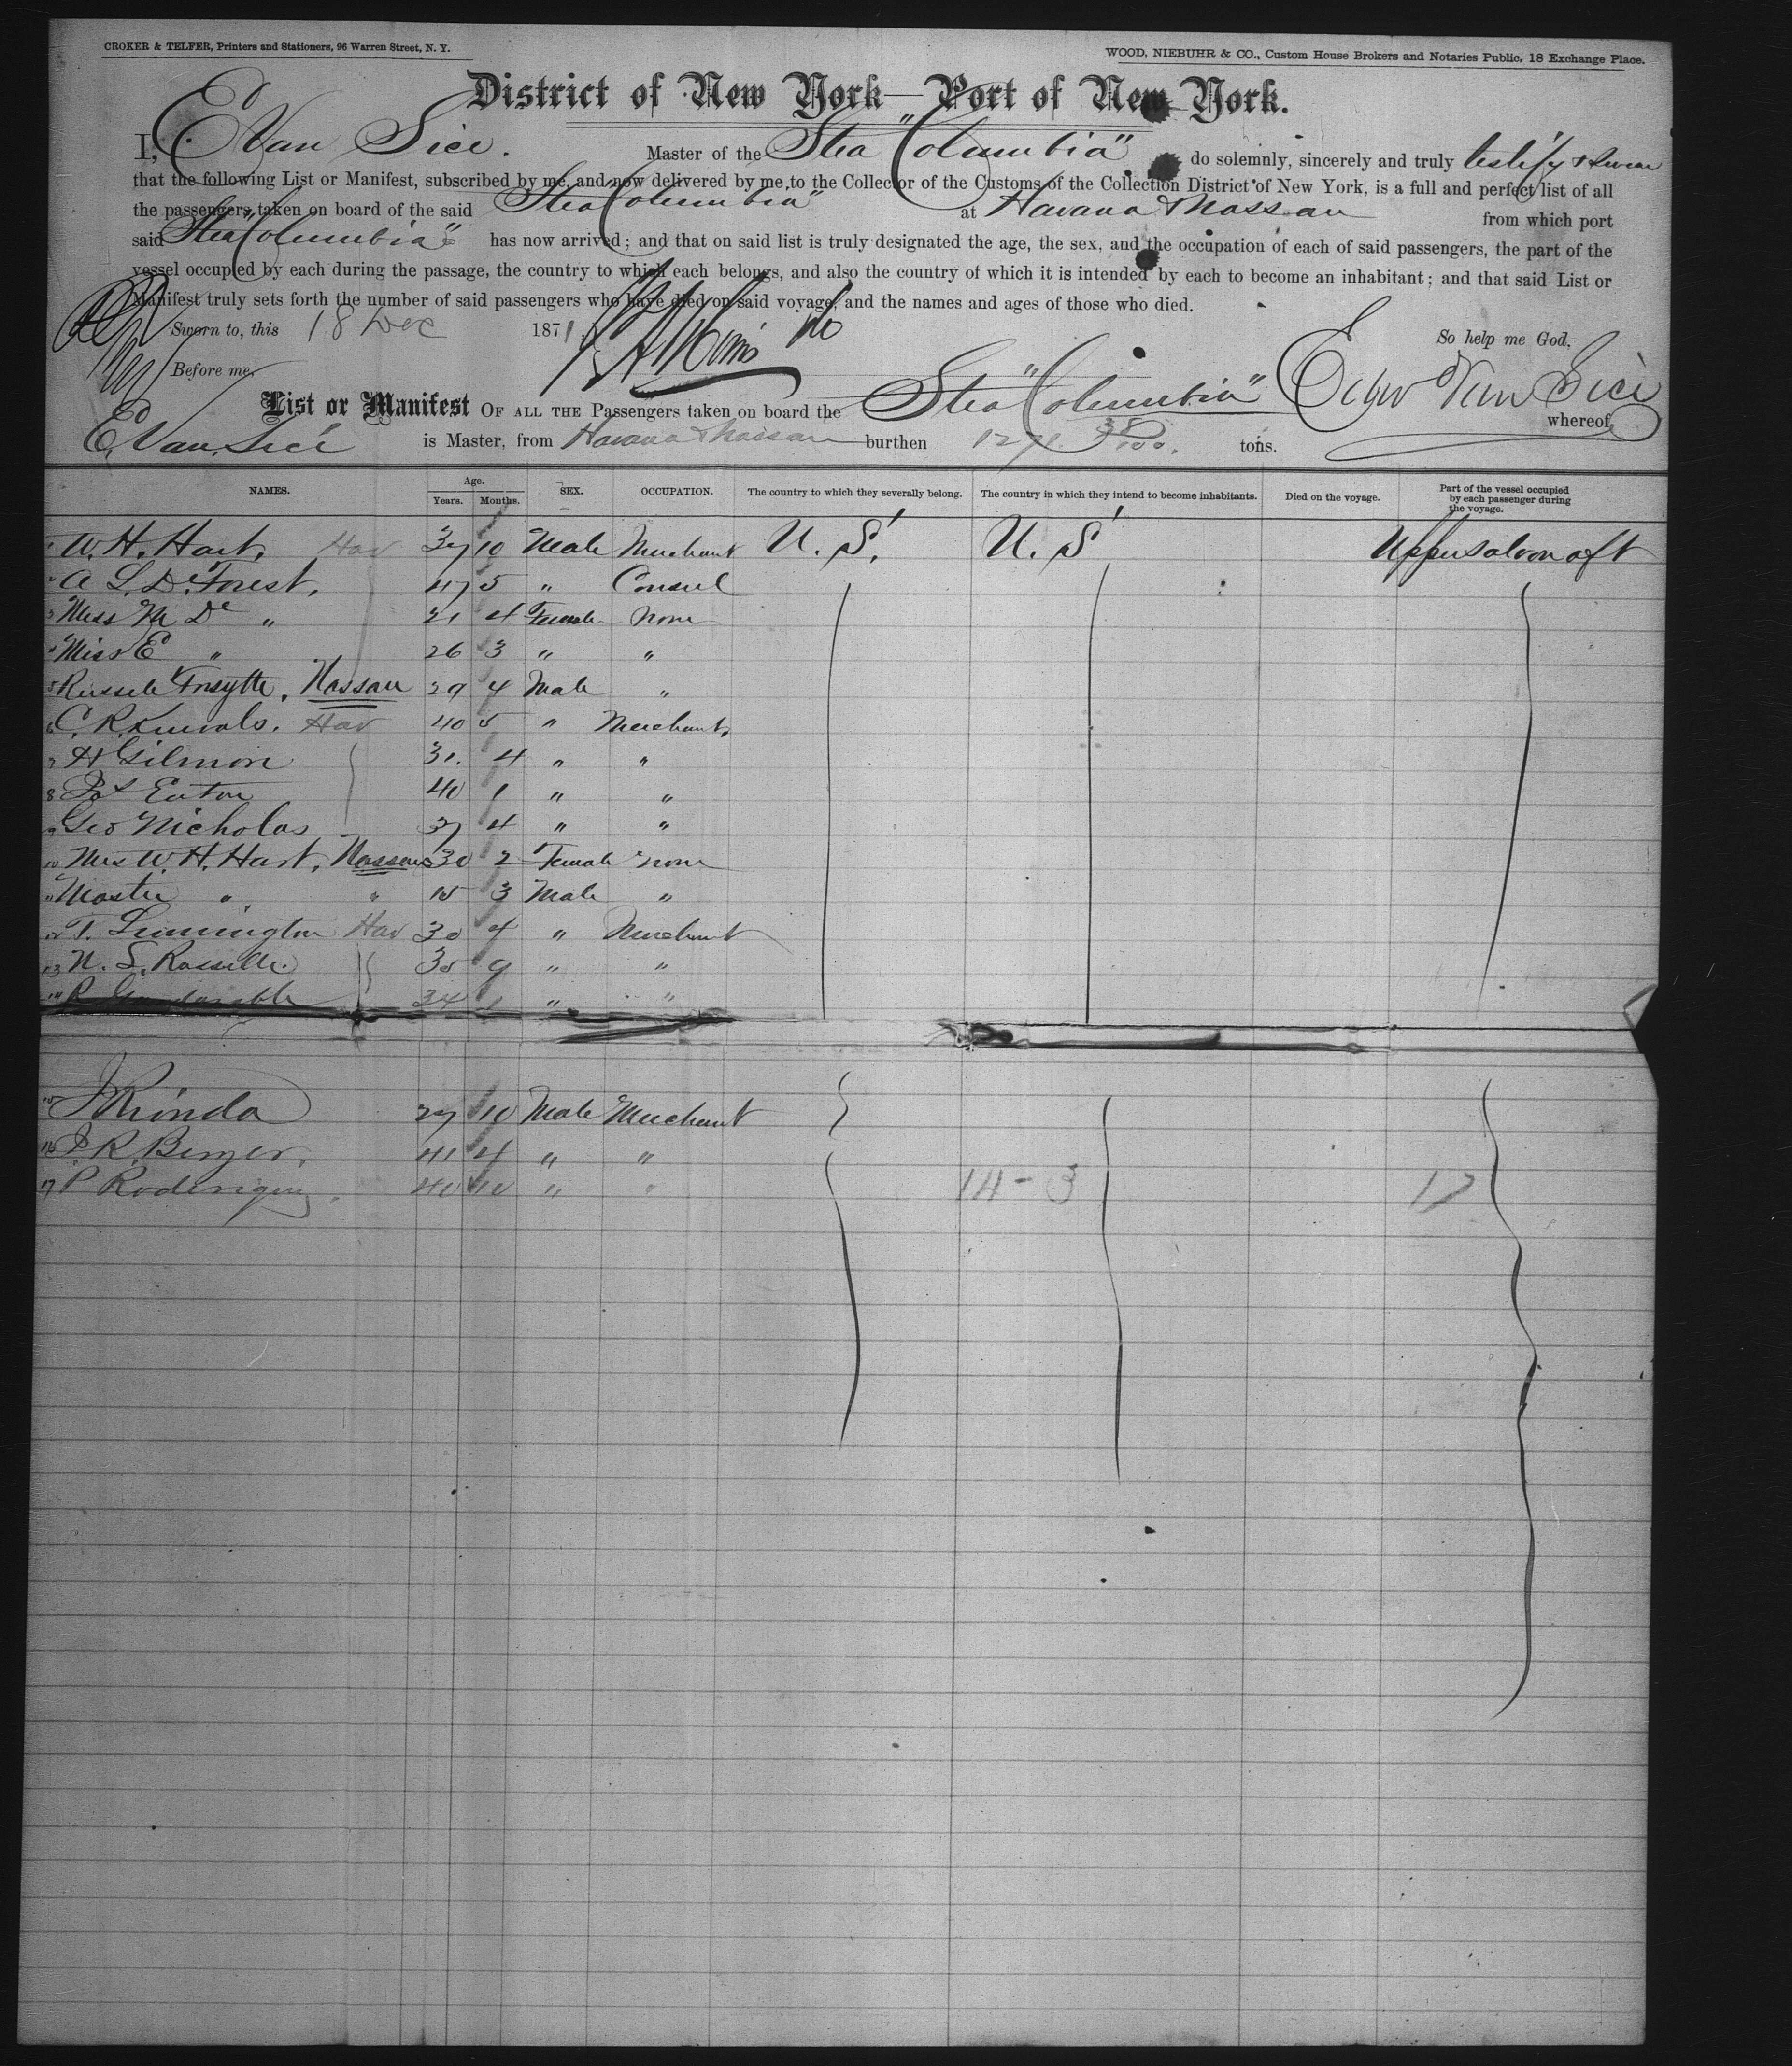 CROKER & TELFER, Printers and Stationers, 96 Warren Street, N. Y.
WOOD, NIEBUHR & CO., Custom House Brokers and Notaries Public, 18 Exchange Place.
District of New York—Port of New York.
I, E Van Sice. Master of the Stea "Columbia" do solemnly, sincerely and truly testify & swear
that the following List or Manifest, subscribed by me, and now delivered by me, to the Collector of the Customs of the Collection District of New York, is a full and perfect list of all
the passengers taken on board of the said Stea Columbia" at Havana & Nassau from which port
said Stea Columbia" has now arrived; and that on said list is truly designated the age, the sex, and the occupation of each of said passengers, the part of the
vessel occupied by each during the passage, the country to which each belongs, and also the country of which it is intended by each to become an inhabitant; and that said List or
Manifest truly sets forth the number of said passengers who have died on said voyage, and the names and ages of those who died.
Sworn to, this 18 Dec 1871.
So help me God,
Before me,
Van Sice
List or Manifest OF ALL THE Passengers taken on board the Stea "Columbia" whereof
E. Van Sice is Master, from Havana & Nassau burthen tons.
NAMES. Age. Years. Months. SEX. OCCUPATION. The country to which they severally belong. The country in which they intend to become inhabitants. Died on the voyage. Part of the vessel occupied by each passenger during the voyage.
1 W. H. Hart, Hav 37 10 Male Merchant U. S. U. S Upper saloon aft
2 A L. De Forest, 47 5 " Consul
3 Miss M De " 21 4 Female None
4 Miss E " 26 3 " "
5 Russell Forsyth, Nassau 29 4 Male "
6 C. R. Hav 40 5 " Merchant,
7 H Gilmore 31. 4 " "
8 Eaton 40 1 " "
9 Geo Nicholas 37 4 " "
10 Mrs W. H. Hart, Nassau 30 2 Female none
11 Master " " 15 3 Male "
12 T. Hav 30 4 " Merchant
13 N. S. 35 9 " "
14 R 34 1 " "
15 J Rinda 27 10 Male Merchant
16 J. R. Berger, 41 4 " "
17 P 40 10 " "
14 - 3 17